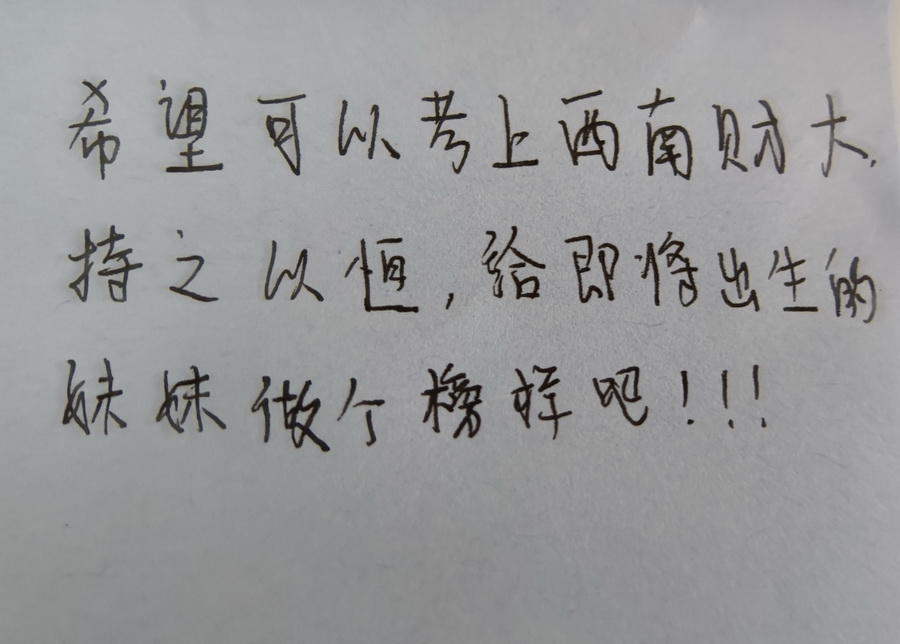 希望可以考上西南财大.
持之以恒,给即将出生的
妹妹做个榜样吧!!!